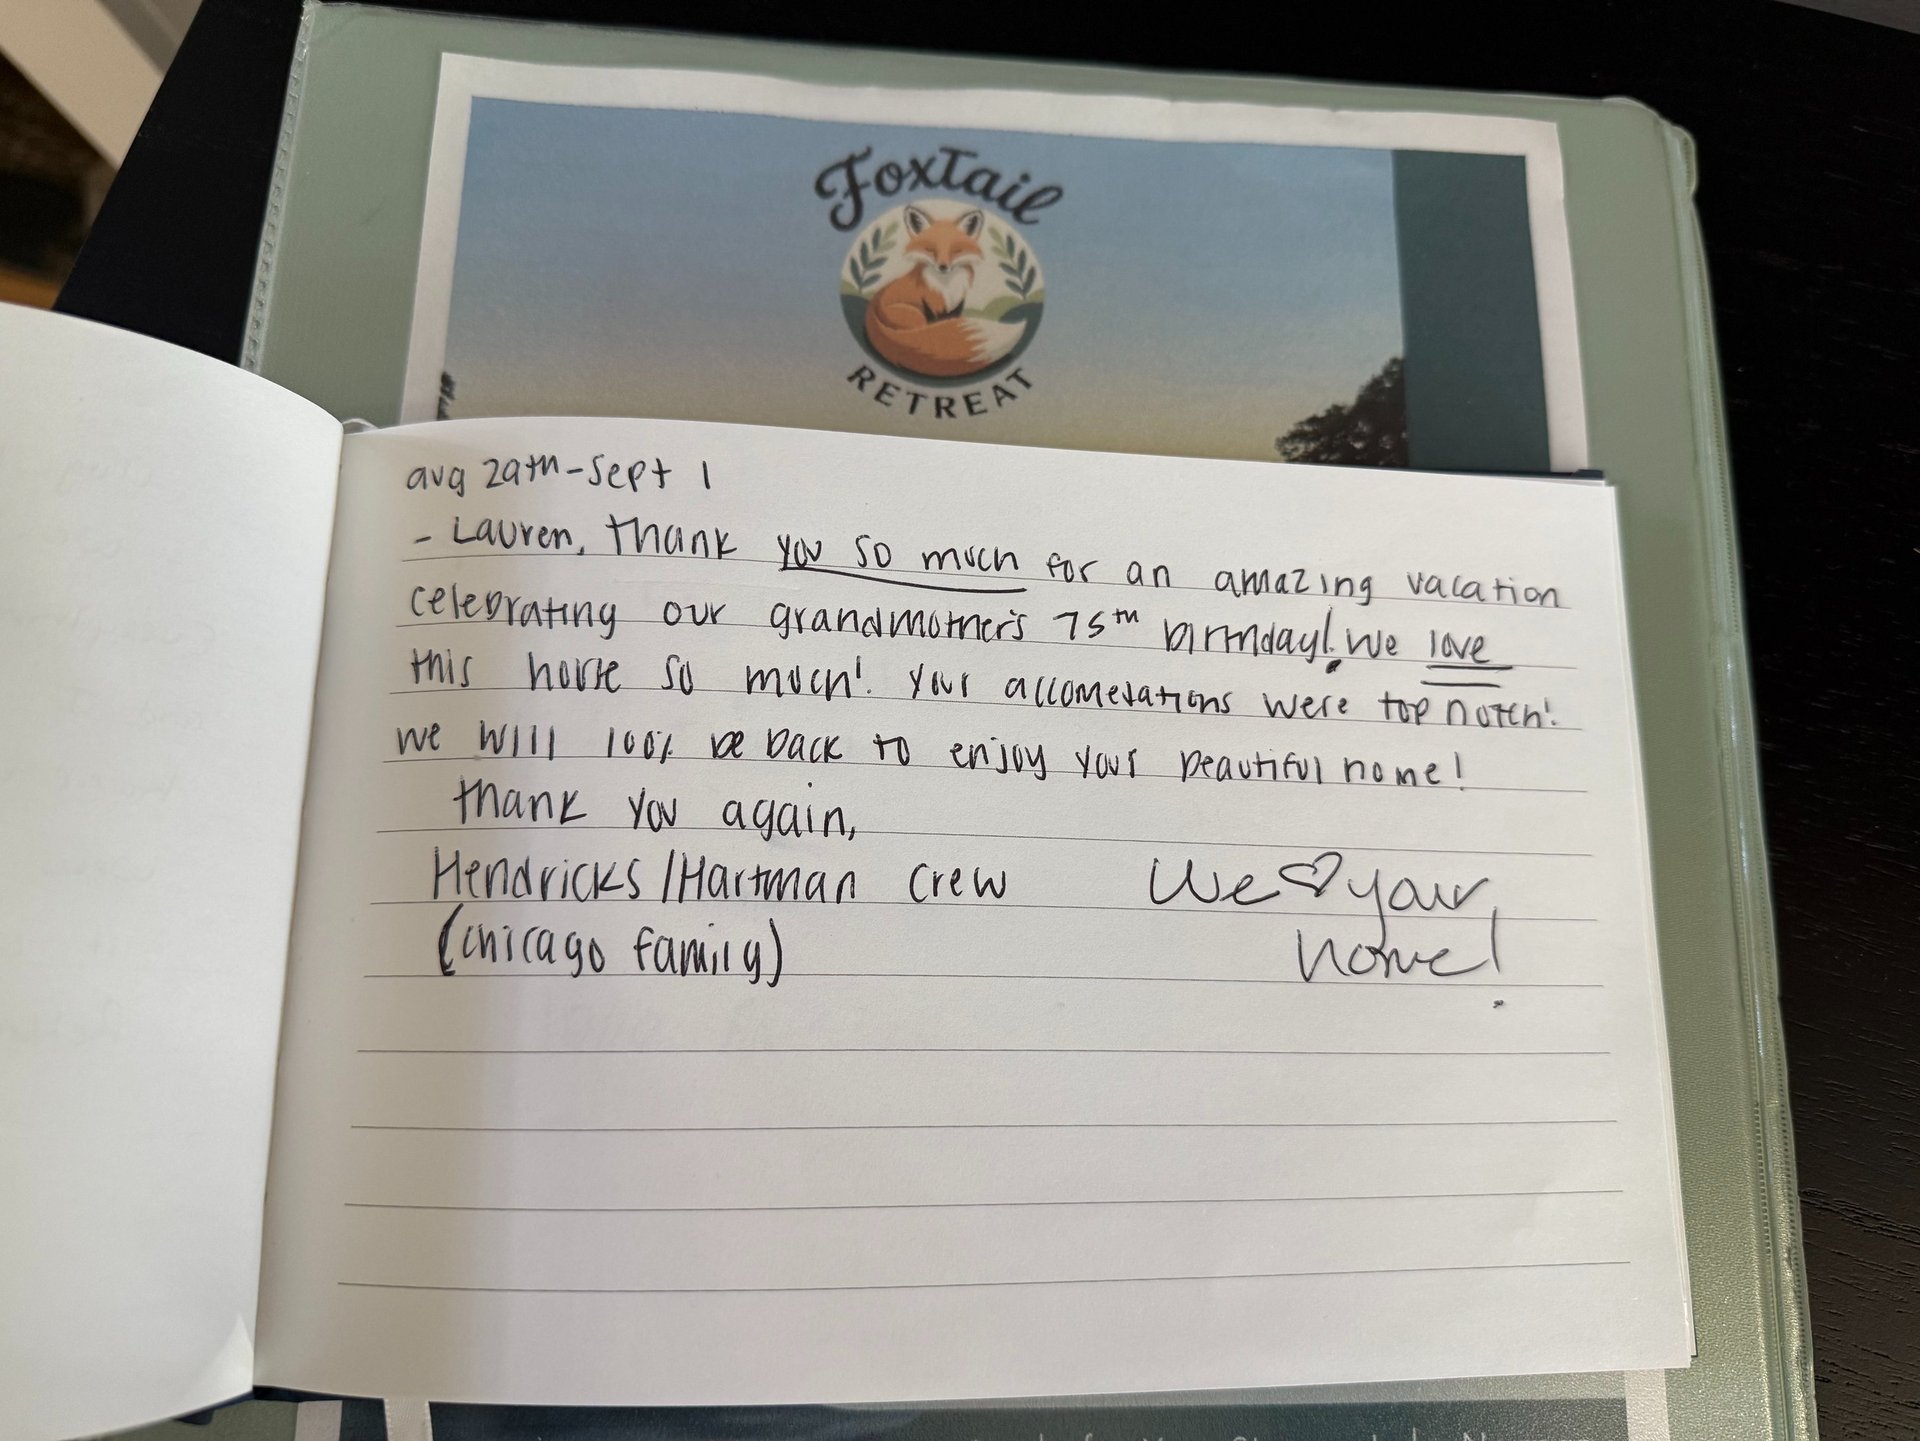 FoxTail
RETREAT
aug 29th - Sept 1
- Lauren, thank you so much for an amazing vacation
celebrating our grandmother's 75th birthday! We love
this house so much! Your accomedations were top notch!
we will 100% be back to enjoy your beautiful home!
thank you again,
Hendricks/Hartman crew
(Chicago family)
We ♡ your
home!